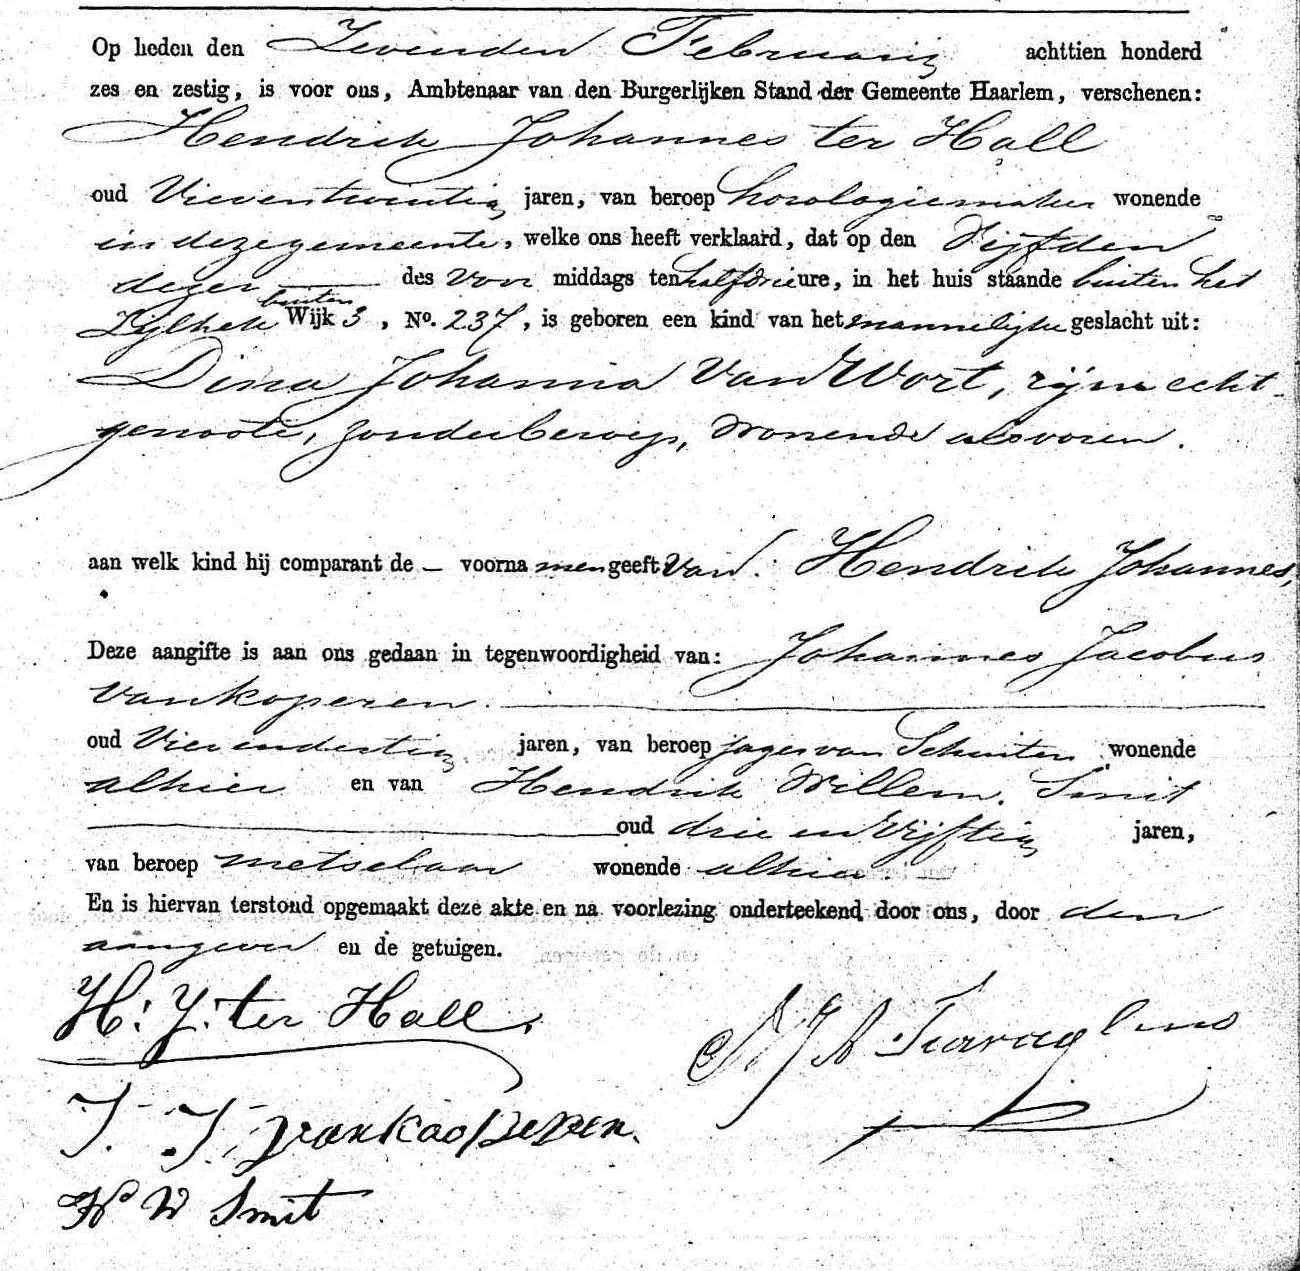 Op heden den Zevenden Februarij achttien honderd
zes en zestig, is voor ons, Ambtenaar van den Burgerlijken Stand der Gemeente Haarlem, verschenen:
Hendrik Johannes ter Hall
oud Vierentwintig jaren, van beroep horologiemaker wonende
in deze gemeente, welke ons heeft verklaard, dat op den Vijfden
dezer des voor middags ten half drie ure, in het huis staande buiten het
buiten
Zylhek Wijk 3, No. 237, is geboren een kind van het mannelijke geslacht uit:
Dina Johanna van Wort, zijne echt-
genoote, zonder beroep, wonende als voren.
aan welk kind hij comparant de voornamen geeft van: Hendrik Johannes,
Deze aangifte is aan ons gedaan in tegenwoordigheid van: Johannes Jacobus
van koperen.
oud Vierendertig jaren, van beroep jager van Schuiten wonende
alhier en van Hendrik Willem Smit
oud drie en Vijftig jaren,
van beroep metselaar wonende alhier.
En is hiervan terstond opgemaakt deze akte en na voorlezing onderteekend door ons, door den
aangever en de getuigen.
H: J: ter Hall.
J. J. van kooperen.
H W Smit